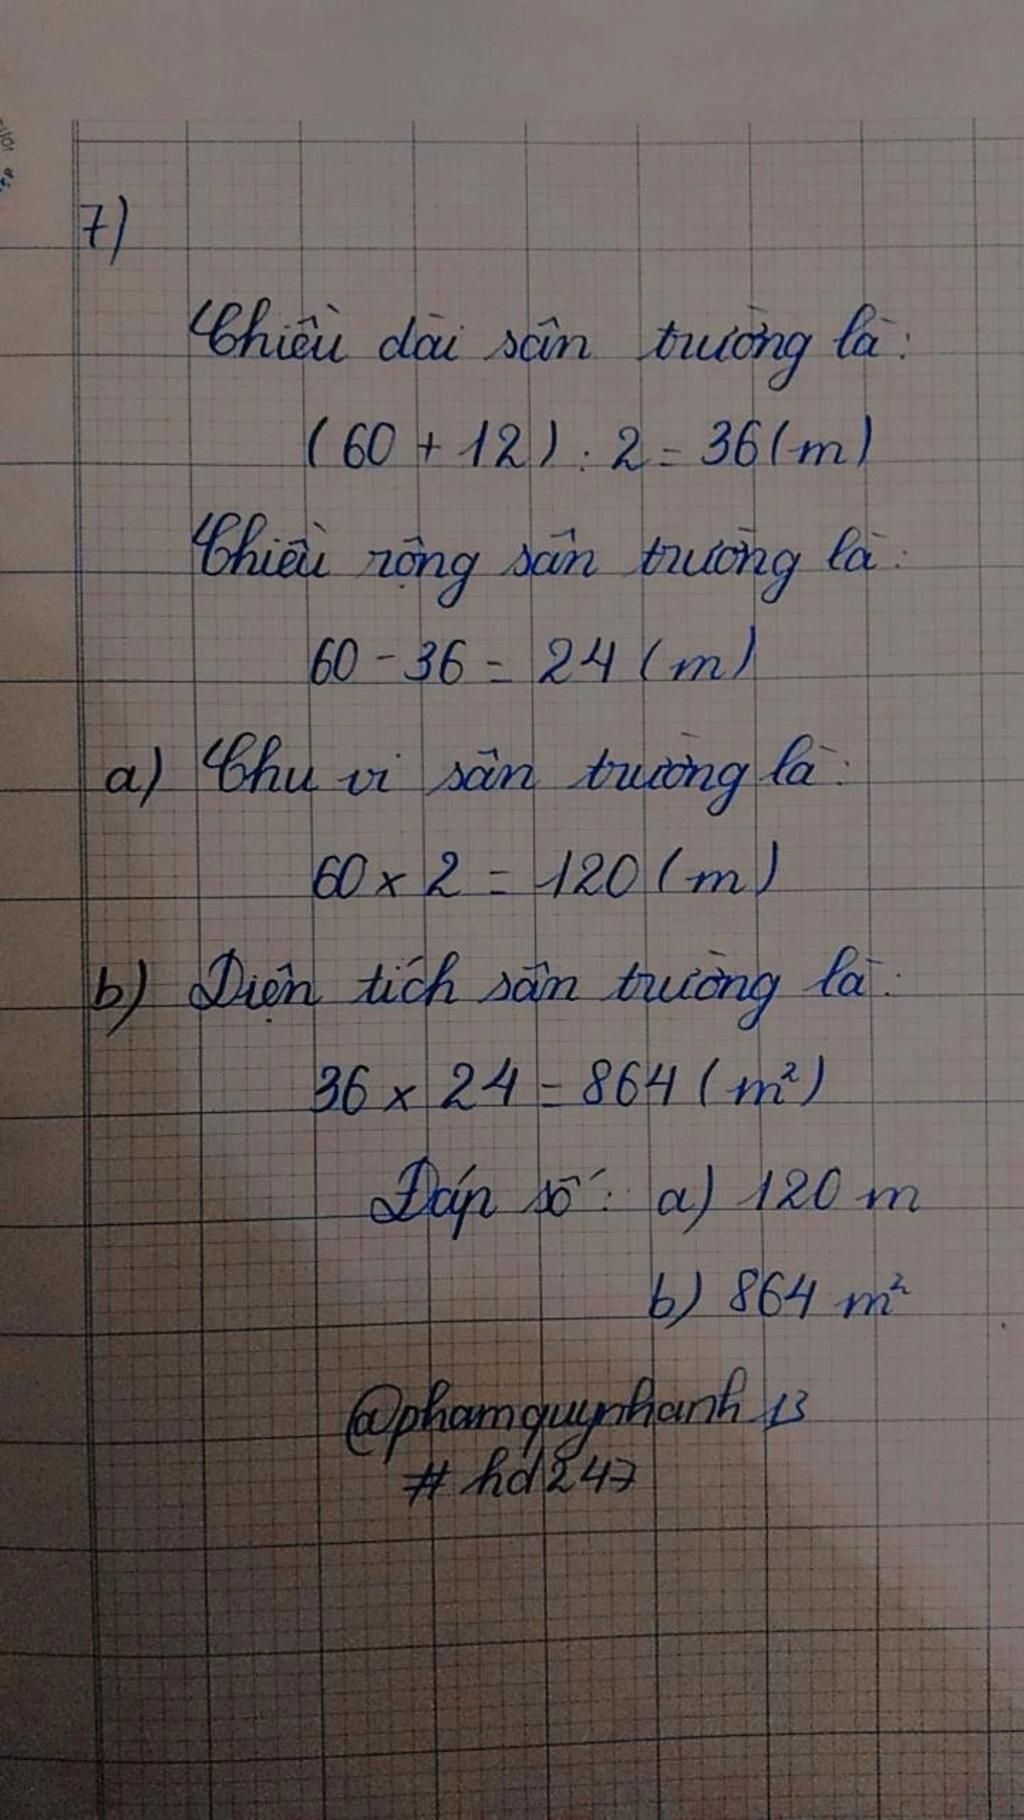 7)
Chiều dài sân trường là:
(60 + 12) : 2 = 36 (m)
Chiều rộng sân trường là:
60 - 36 = 24 (m)
a) Chu vi sân trường là:
60 x 2 = 120 (m)
b) Diện tích sân trường là:
36 x 24 = 864 (m²)
Đáp số: a) 120 m
b) 864 m²
@phamquynhanh13
#hd247